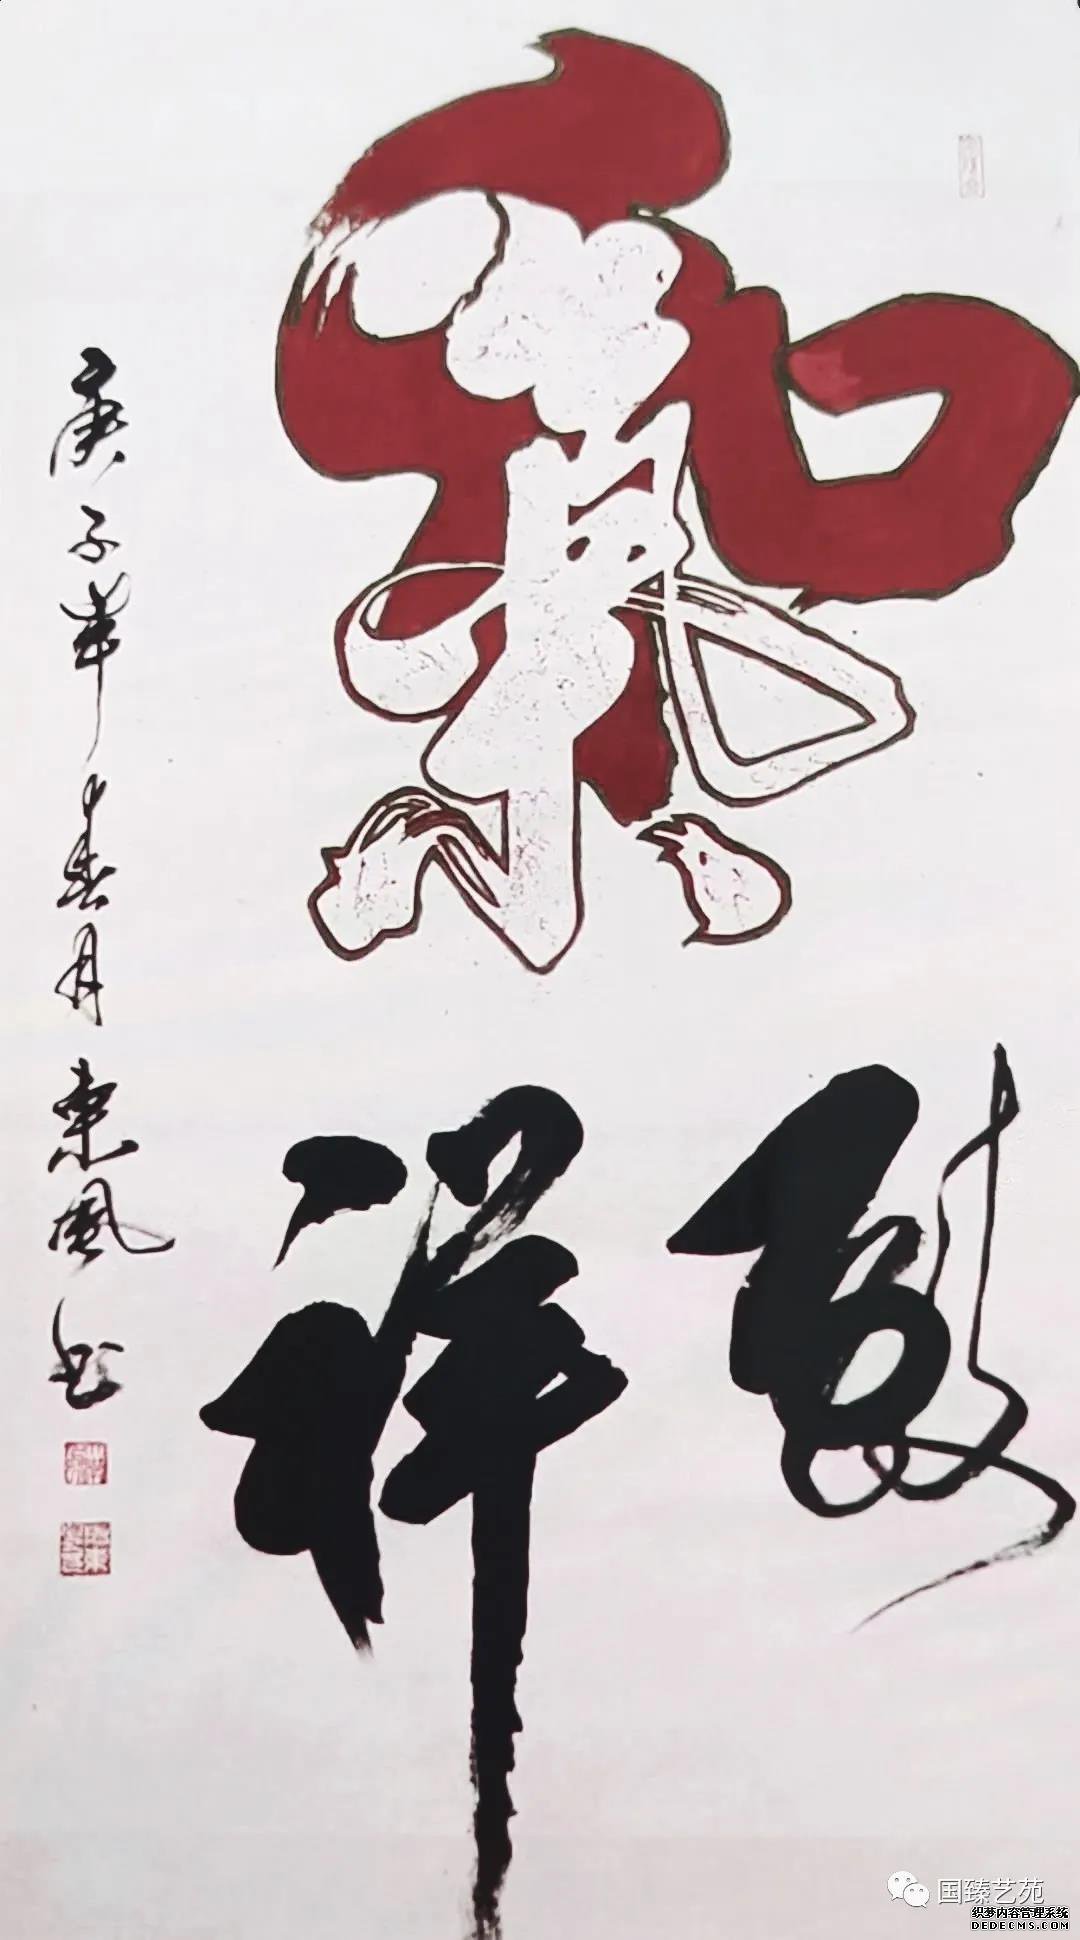 和
致祥
庚子年春月東風书
国臻艺苑
织梦内容管理系统
DEDECMS.COM